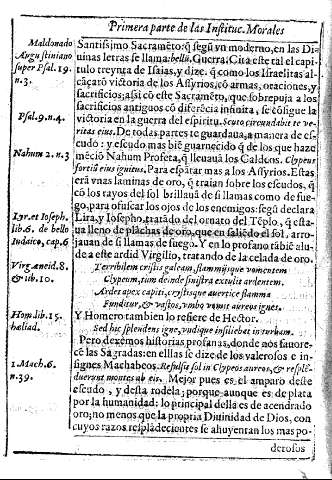 Primera parte de las Instituc. Morales
Maldonado
Augustiniano
super Psal. 19.
n.3.
Psal. 9. n. 4.
Nahum 2. n. 3
Lyr. et Ioseph.
lib. 6. de bello
Iudaico, cap. 6
Virg. æneid. 8.
& lib. 10.
Hom. lib. 15.
heliad.
1. Mach. 6.
n. 39.
Santissimo Sacramẽto: q̃ segũ vn moderno, en las Di-
uinas letras se llama: bellũ. Guerra. Cita este tal el capi-
tulo treynta de Isaias, y dize, q̃ como los Israelitas al-
cãçarõ victoria de los Assyrios, cõ armas, oraciones, y
sacrificios; assi cõ este Sacramẽto, que sobrepuja a los
sacrificios antiguos cõ diferẽcia infinita, se cõsigue la
victoria en la guerra del espiritu. Scuto circundabit te ve-
ritas eius. De todas partes te guardaua, a manera de es-
cudo: y escudo mas biẽ guarnecido q̃ de los que haze
mẽciõ Nahum Profeta, q̃ lleuauã los Caldeos. Clypeus
fortiũ eius ignitus. Para espãtar mas a los Assyrios. Estas
erã vnas laminas de oro, q̃ traian sobre los escudos, q̃
cõ los rayos del sol brillauã de si llamas como de fue-
go, para ofuscar los ojos de los enemigos: segũ declara
Lira, y Iosepho, tratãdo del ornato del Tẽplo, q̃ esta-
ua lleno de plãchas de oro, que en saliẽdo el sol, arro-
jauan de si llamas de fuego. Y en lo profano tãbiẽ alu-
de a este ardid Virgilio, tratando de la celada de oro.
Terribilem cristis galeam, flammisque vomentem
Clypeum, tum deinde sinistra extulit ardentem.
Ardet apex capiti, crystisque avertice flamma
Funditur, & vastos, vmbo vomit aureus ignes.
Y Homero tambien lo refiere de Hector.
Sed hic splendens igne, vndique insiliebat in turbam.
Pero dexemos historias profanas, donde nos fauore-
cẽ las Sagradas: en ellas se dize de los valerosos e in-
signes Machabeos. Refulsit sol in Clypeos aureos, & resplẽ-
duerunt montes ab eis. Mejor pues es el amparo deste
escudo, y desta rodela; porque aunque es de plata
por la humanidad: lo principal della es de acendrado
oro; no menos que la propria Diuinidad de Dios, con
cuyos rayos resplãdecientes se ahuyentan los mas po-
derosos